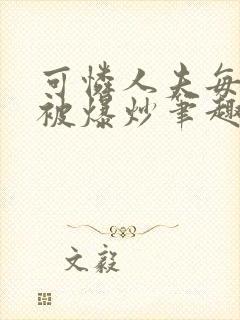 可憐人夫每
被爆炒筆趣
文毅